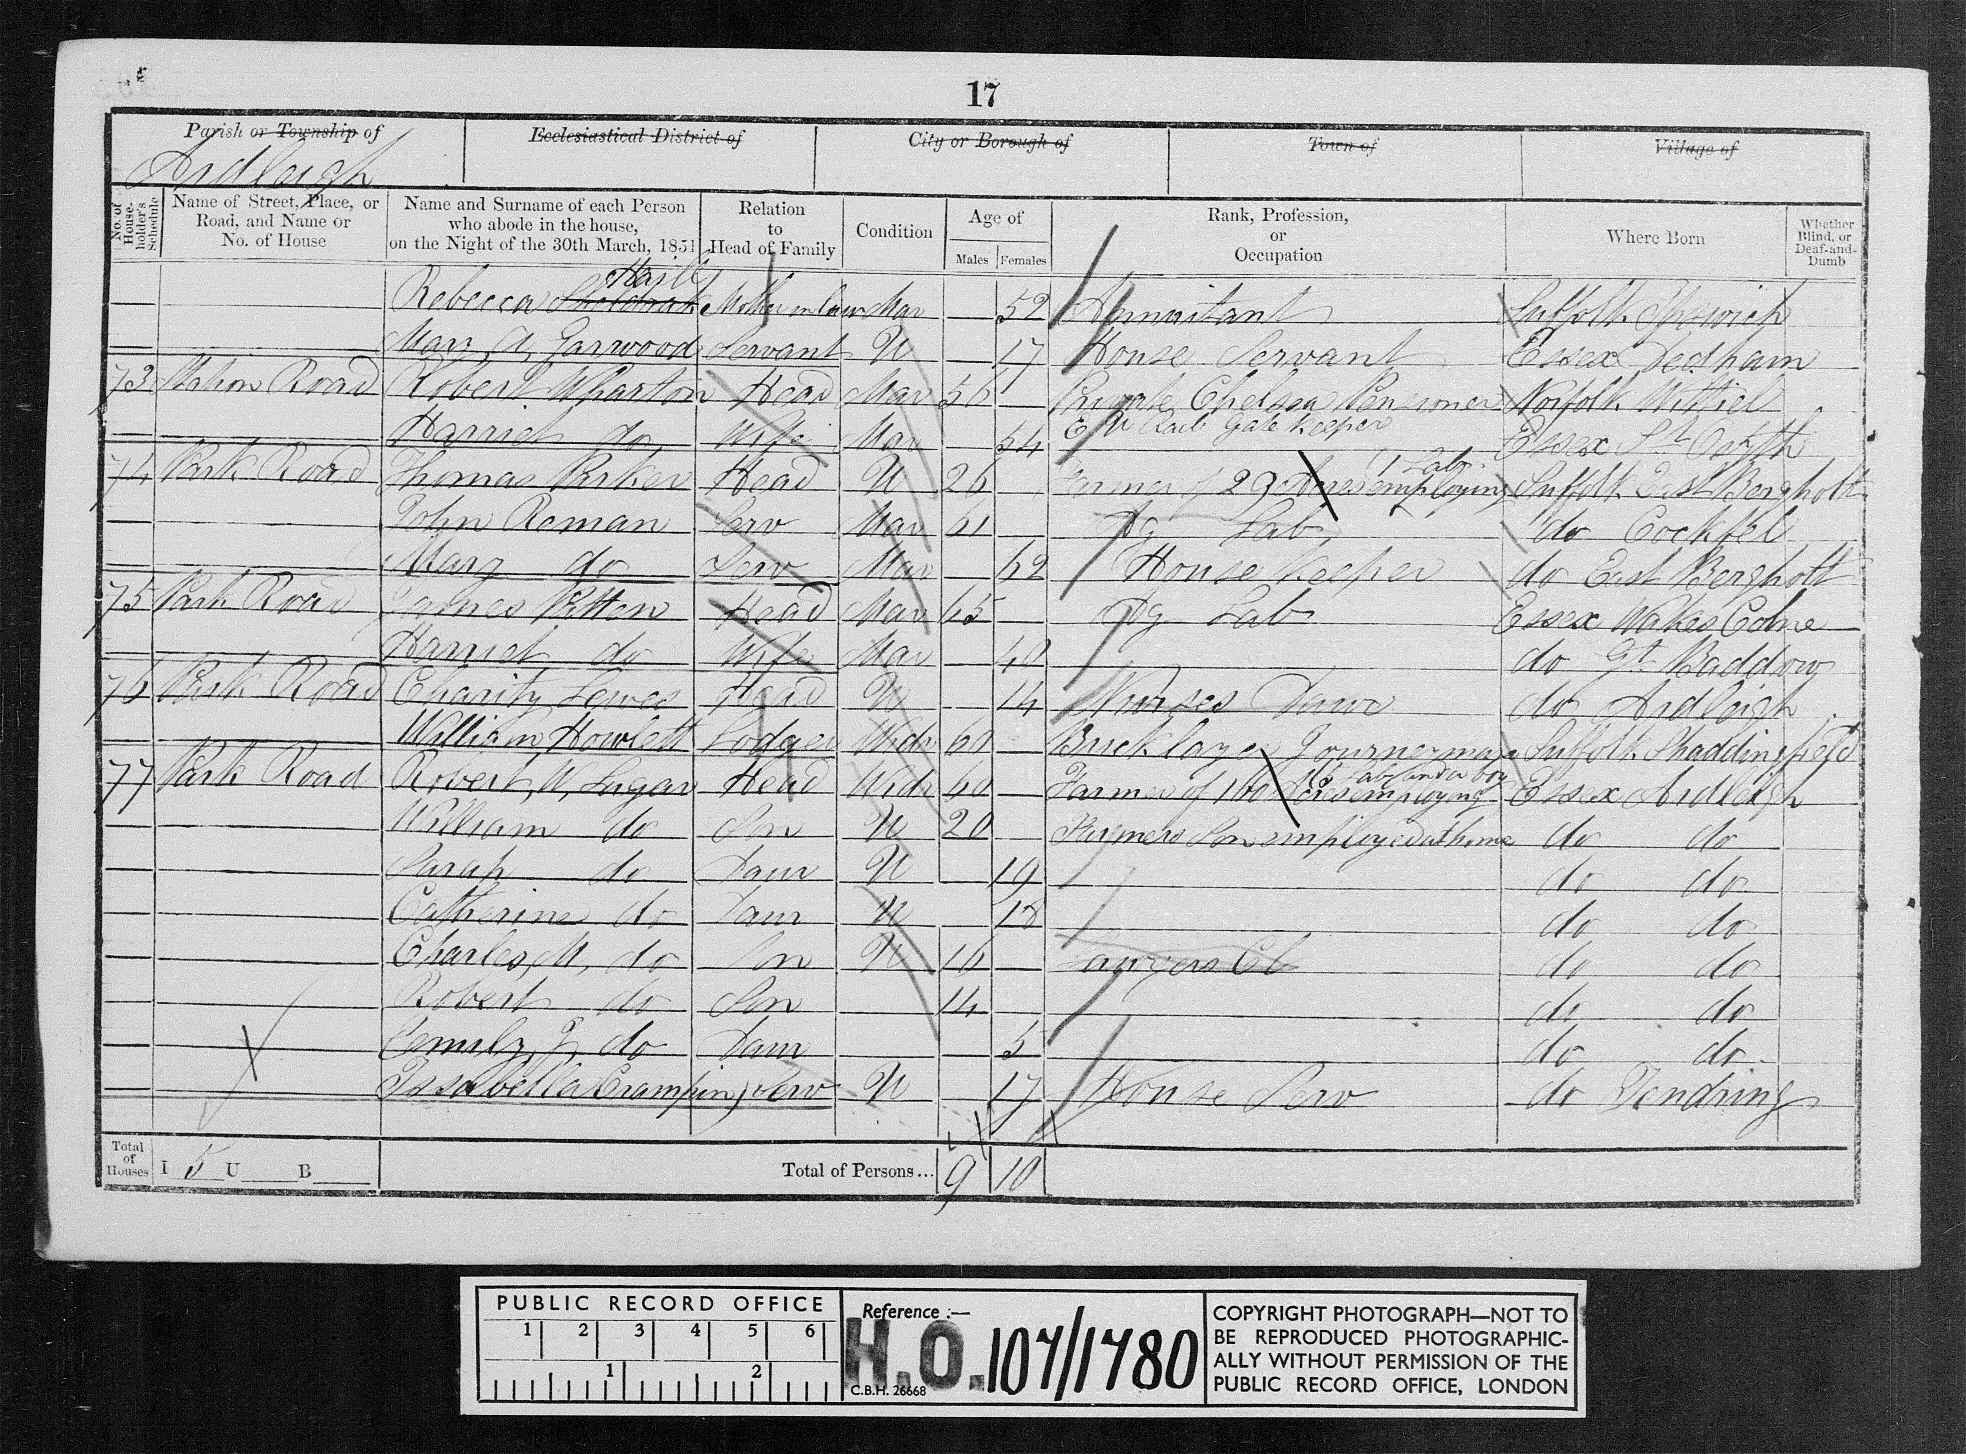 17
Parish or Township of
Ecclesiastical District of
City or Borough of
Town of
Village of
Ardleigh
No. of House-holder's Schedule
Name of Street, Place, or Road, and Name or No. of House
Name and Surname of each Person who abode in the house, on the Night of the 30th March, 1851
Relation to Head of Family
Condition
Age of
Males
Females
Rank, Profession, or Occupation
Where Born
Whether Blind, or Deaf-and-Dumb
Rebecca Mother in law Mar 52 Annuitant Suffolk Ipswich
Mary A Garwood Servant U 17 House Servant Essex Dedham
73 Station Road Robert Wharton Head Mar 56 Private Chelsea Pensioner Norfolk
Rail Gate Keeper
Harriet do Wife Mar 54 Essex St Osyth
1 Lab
74 Park Road Thomas Head U 26 Farmer of 29 Acres employing Suffolk East Bergholt
John Roman Serv Mar 61 Ag Lab do
Mary do Serv Mar 62 House Keeper do East Bergholt
75 Park Road James Head Mar 65 Ag Lab Essex Wakes Colne
Harriet do Wife Mar 40 do Gt Baddow
76 Park Road Charity Lewes Head U 14 Nurses Daur do Ardleigh
William Howlett Lodger Widr 60 Bricklayer Journeyman Suffolk Shaddingfield
77 Park Road Robert W Lugar Head Widr 60 Farmer of 160 Acres employing Labs and a boy Essex Ardleigh
William do Son U 20 Farmers Son employed at home do do
Sarah do Daur U 19 do do
Catherine do Daur U 18 do do
Charles M. do Son U 16 Lawyers Cl do do
Robert do Son 14 do do
Emily J do Daur 5 do do
Issabella Crampin Serv U 17 House Serv do Tendring
Total of Houses I 5 U B
Total of Persons... 9 10
PUBLIC RECORD OFFICE
1 2 3 4 5 6
1 2
Reference :—
H.O. 107/1780
C.B.H. 26668
COPYRIGHT PHOTOGRAPH—NOT TO
BE REPRODUCED PHOTOGRAPHIC-
ALLY WITHOUT PERMISSION OF THE
PUBLIC RECORD OFFICE, LONDON